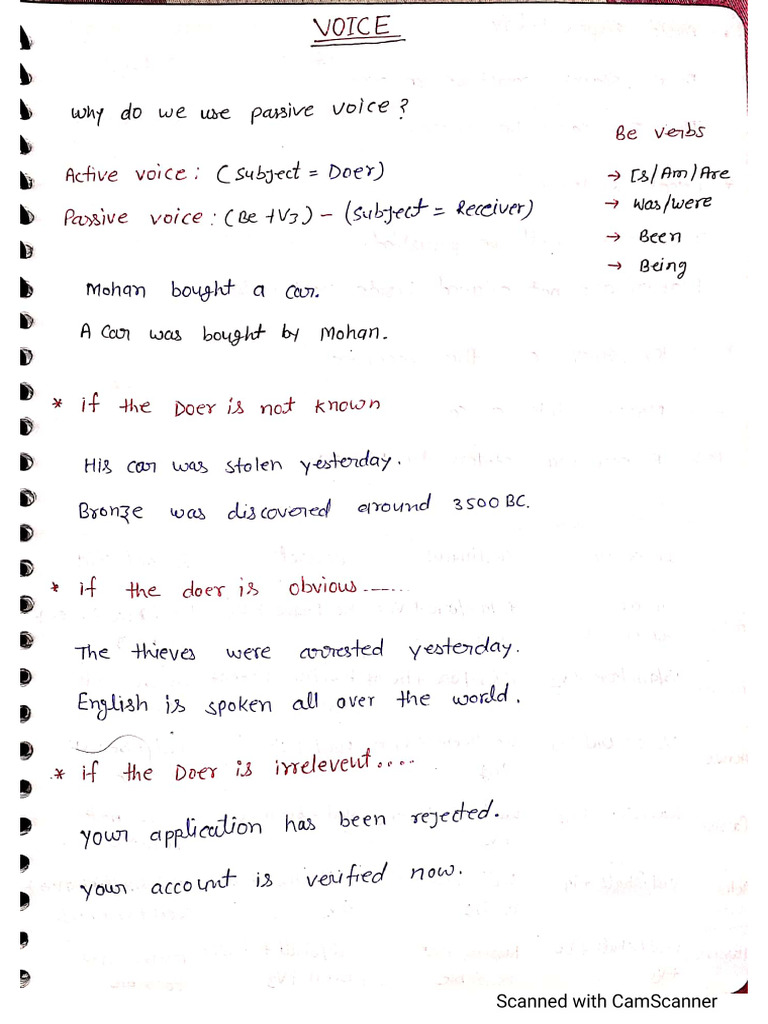 VOICE
Why do we use passive voice?
Be verbs
Active voice: (Subject = Doer)
→ Is/Am/Are
Passive voice: (Be +V3) - (Subject = Receiver)
→ Was/were
→ Been
→ Being
Mohan bought a car.
A car was bought by Mohan.
* if the Doer is not known
His car was stolen yesterday.
Bronze was discovered around 3500 BC.
* if the doer is obvious......
The thieves were arrested yesterday.
English is spoken all over the world.
* if the Doer is irrelevent....
your application has been rejected.
your account is verified now.
Scanned with CamScanner